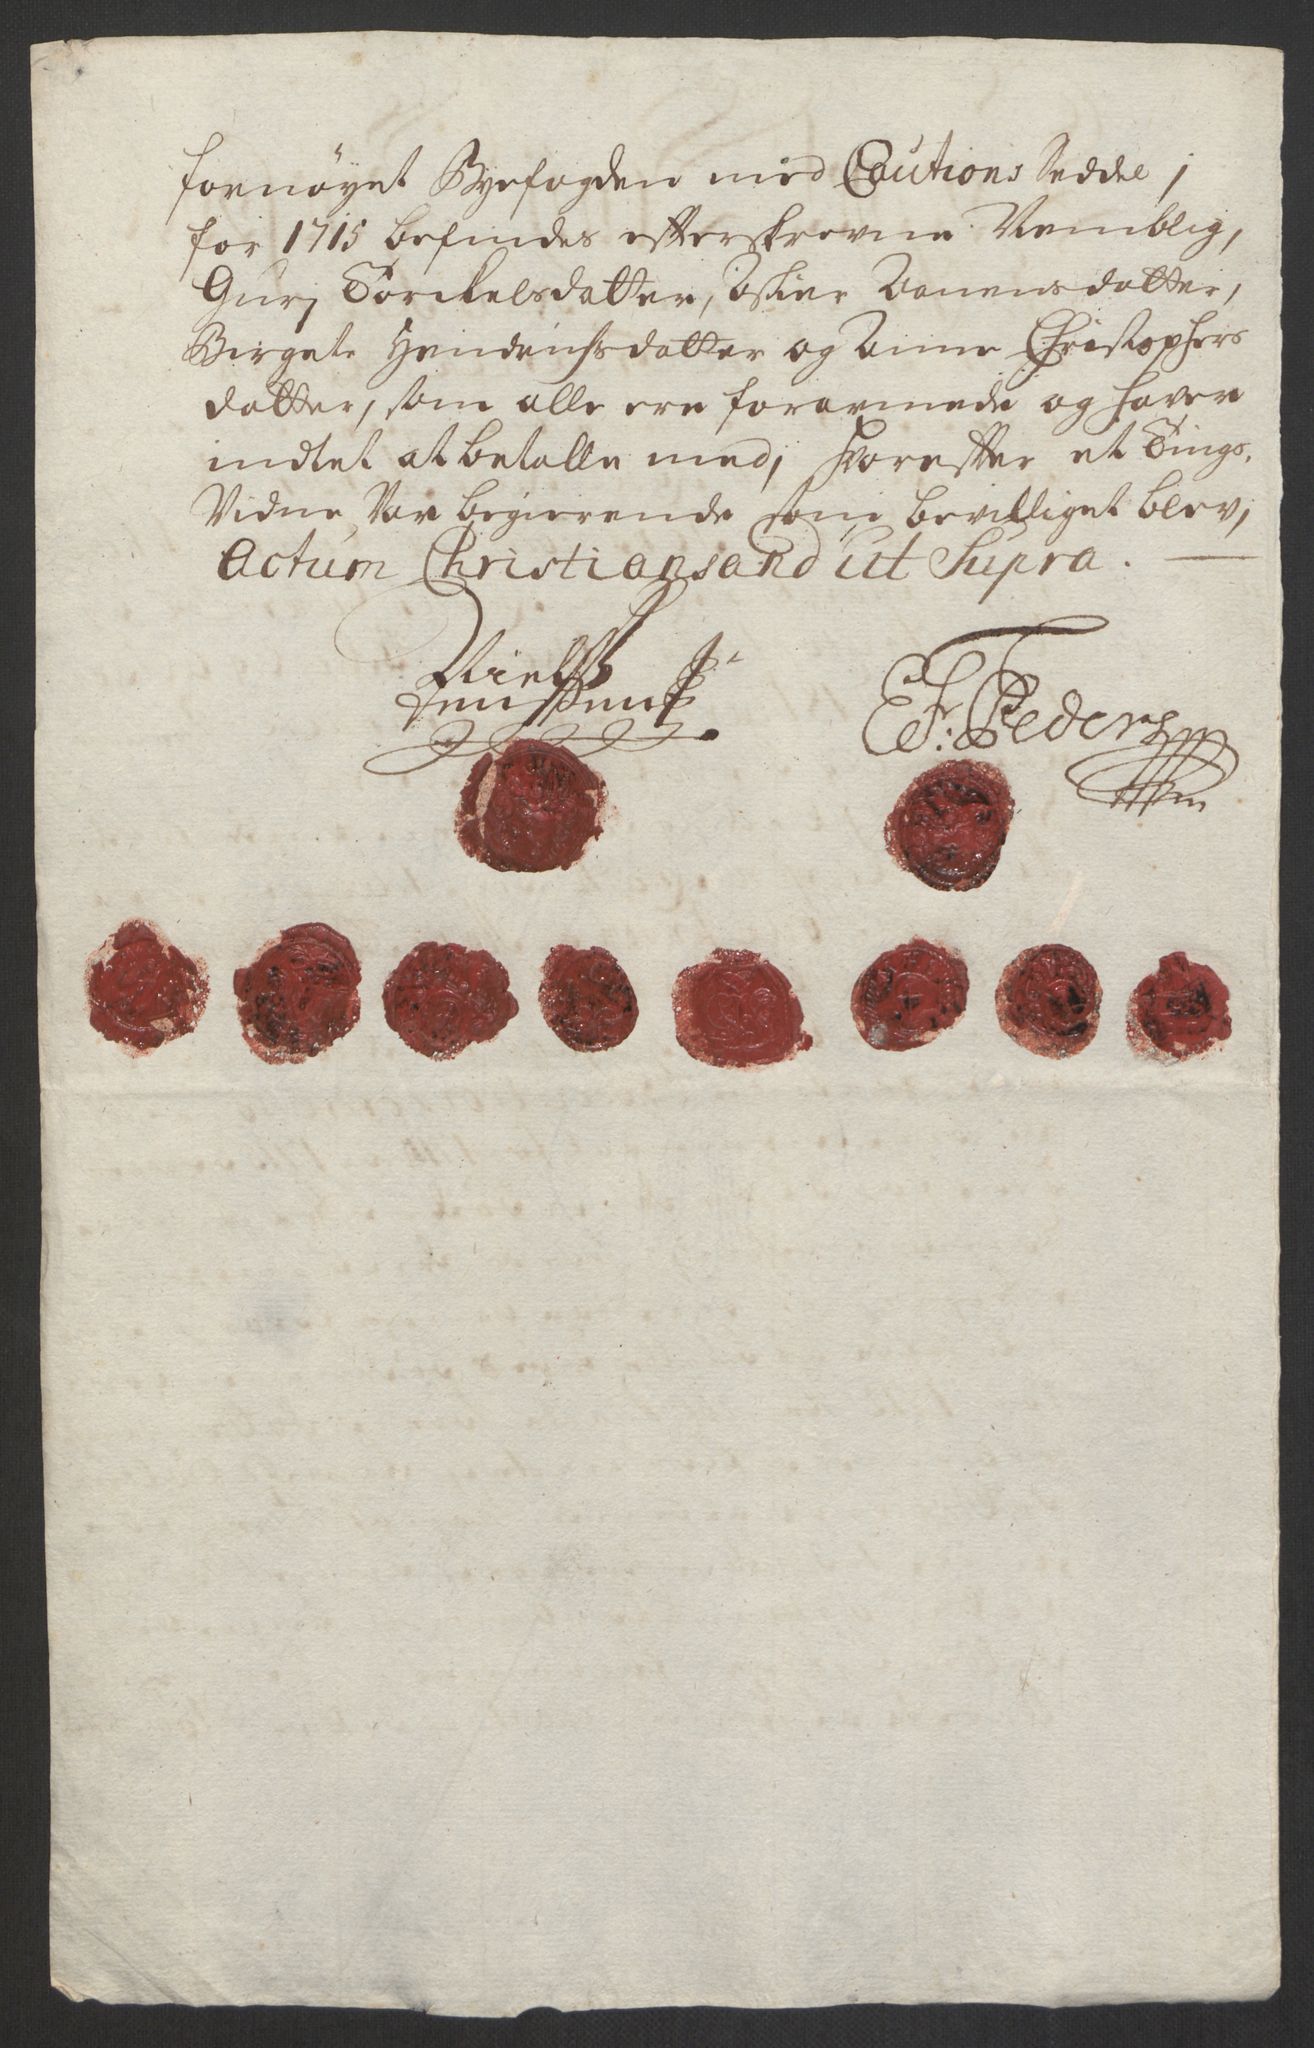 fornöyet Byefogden med Cautions Seddel,
for 1715 befindes efterskrevne Nemblig,
Gurj Torckelsdatter, Aanensdatter,
Birgete Hendrichsdatter og Anne Christophers
datter, som alle ere forarmede og haver
indtet at betalle med, hvorefter et Tings,
Vidne var begierende som bevilliget blev,
Actum Christiansand ut Supra.
Niels
E F: Peders